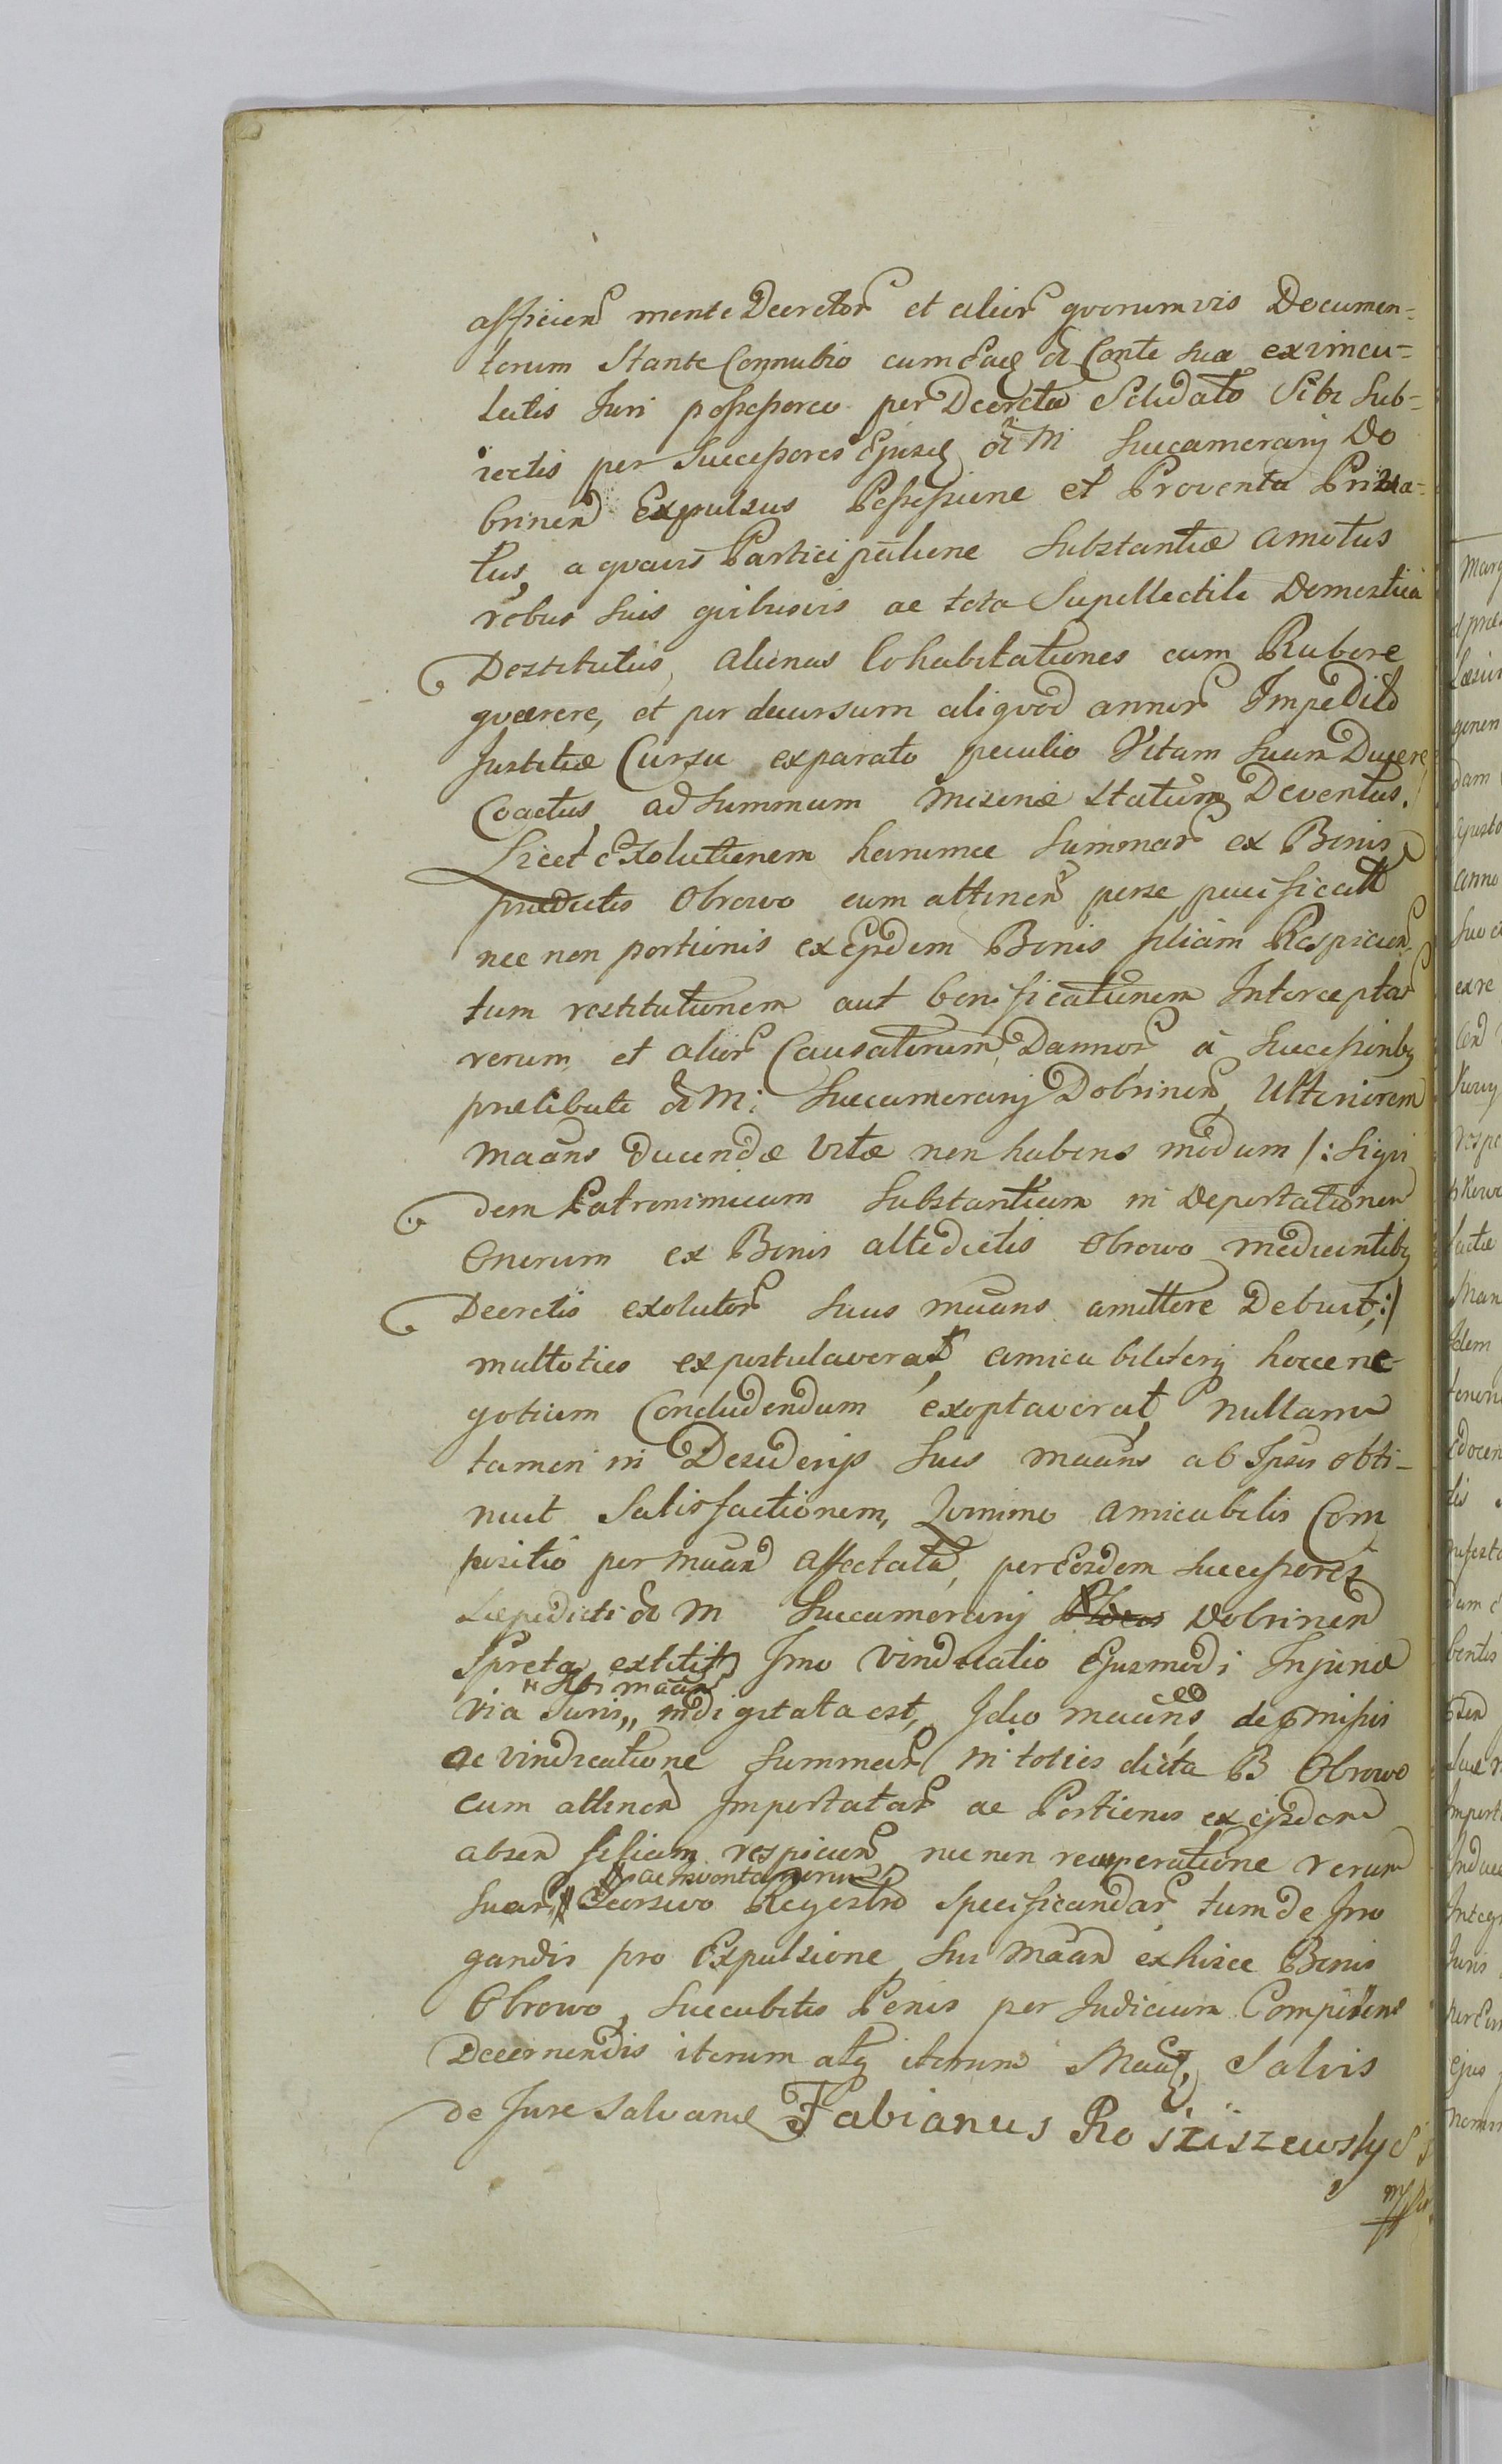 afficien mente Decretor et alior qvorumvis Documen=
torum Stante Connubio cum Eadq Conte sua eximcu=
latis Juri possessoreo per Decreta Solidato Sibi Sub=
iectis per Successores Ejusdq olim M Succamerarij Do
brinen Expulsus Possessione et Proventu Priva=
tus, a qvavis Participatione Substantiæ amotus
rebus suis qvibusvis ac tota Supellectile Domestica
Destitutus, alienas Cohabitationes cum Rubore
qværere, et per decursum aliqvod annor Impedito
Justitiæ Cursu exparato peculio Vitam Suam Ducere
Coactus, ad Summum Miseriæ Statum Deventus.
Licet exolutionem harumce Summar ex Bonis
prædictis Obrowo cum attinen per se pacificat
nec non portionis ex Ejsdem Bonis filiam Respicien
tum restitutionem aut bonificationem Interceptar
rerum, et alior Causatorum Damnor à Successoribq
prælibati olim M: Succamerarij Dobrinen, Ulteriorem
Maans Ducendæ Vitæ non habens modum /: Siqvi
dem Patronimicam Substantiam in Deportationem
Onerum ex Bonis altedictis Obrowo mediantibq
Decretis exolutor suus maans amittere Debuit, :/
multoties expostulaverat, amicabiliterq hocce ne-
gotium Concludendum exoptaverat, Nullam
tamen in Desiderijs Suis maans ab Ipsis obti-
nuit Satisfactionem, Qvinimo amicabilis Com
positio per maan affectata, per Eosdem Successores
Sæpedicti olim M Succamerarij Dobrinen
Spreta extitit, Imo Vindicatio Ejusmodi Injuriæ
Via Juris,, Ipsi maan indigitata est, Ideo maans, de præmissis
ac vindicatione Summar in toties dicta B Obrowo
cum attinen Importatar ac Portionis ex ejsdem
absen filiam respicien nec non recuperatione rerum
Suar, ac inventariorum Seorsivo Regestro Specificandar, tum de Irro
gandis pro Expulsione Sui Maan ex hisce Bonis
Obrowo, Succubitis Pœnis per Judicium Competens
Decernendis iterum atq iterum Maat, Salvis
de Jure Salvand Fabianus Rościszewsky
mpp